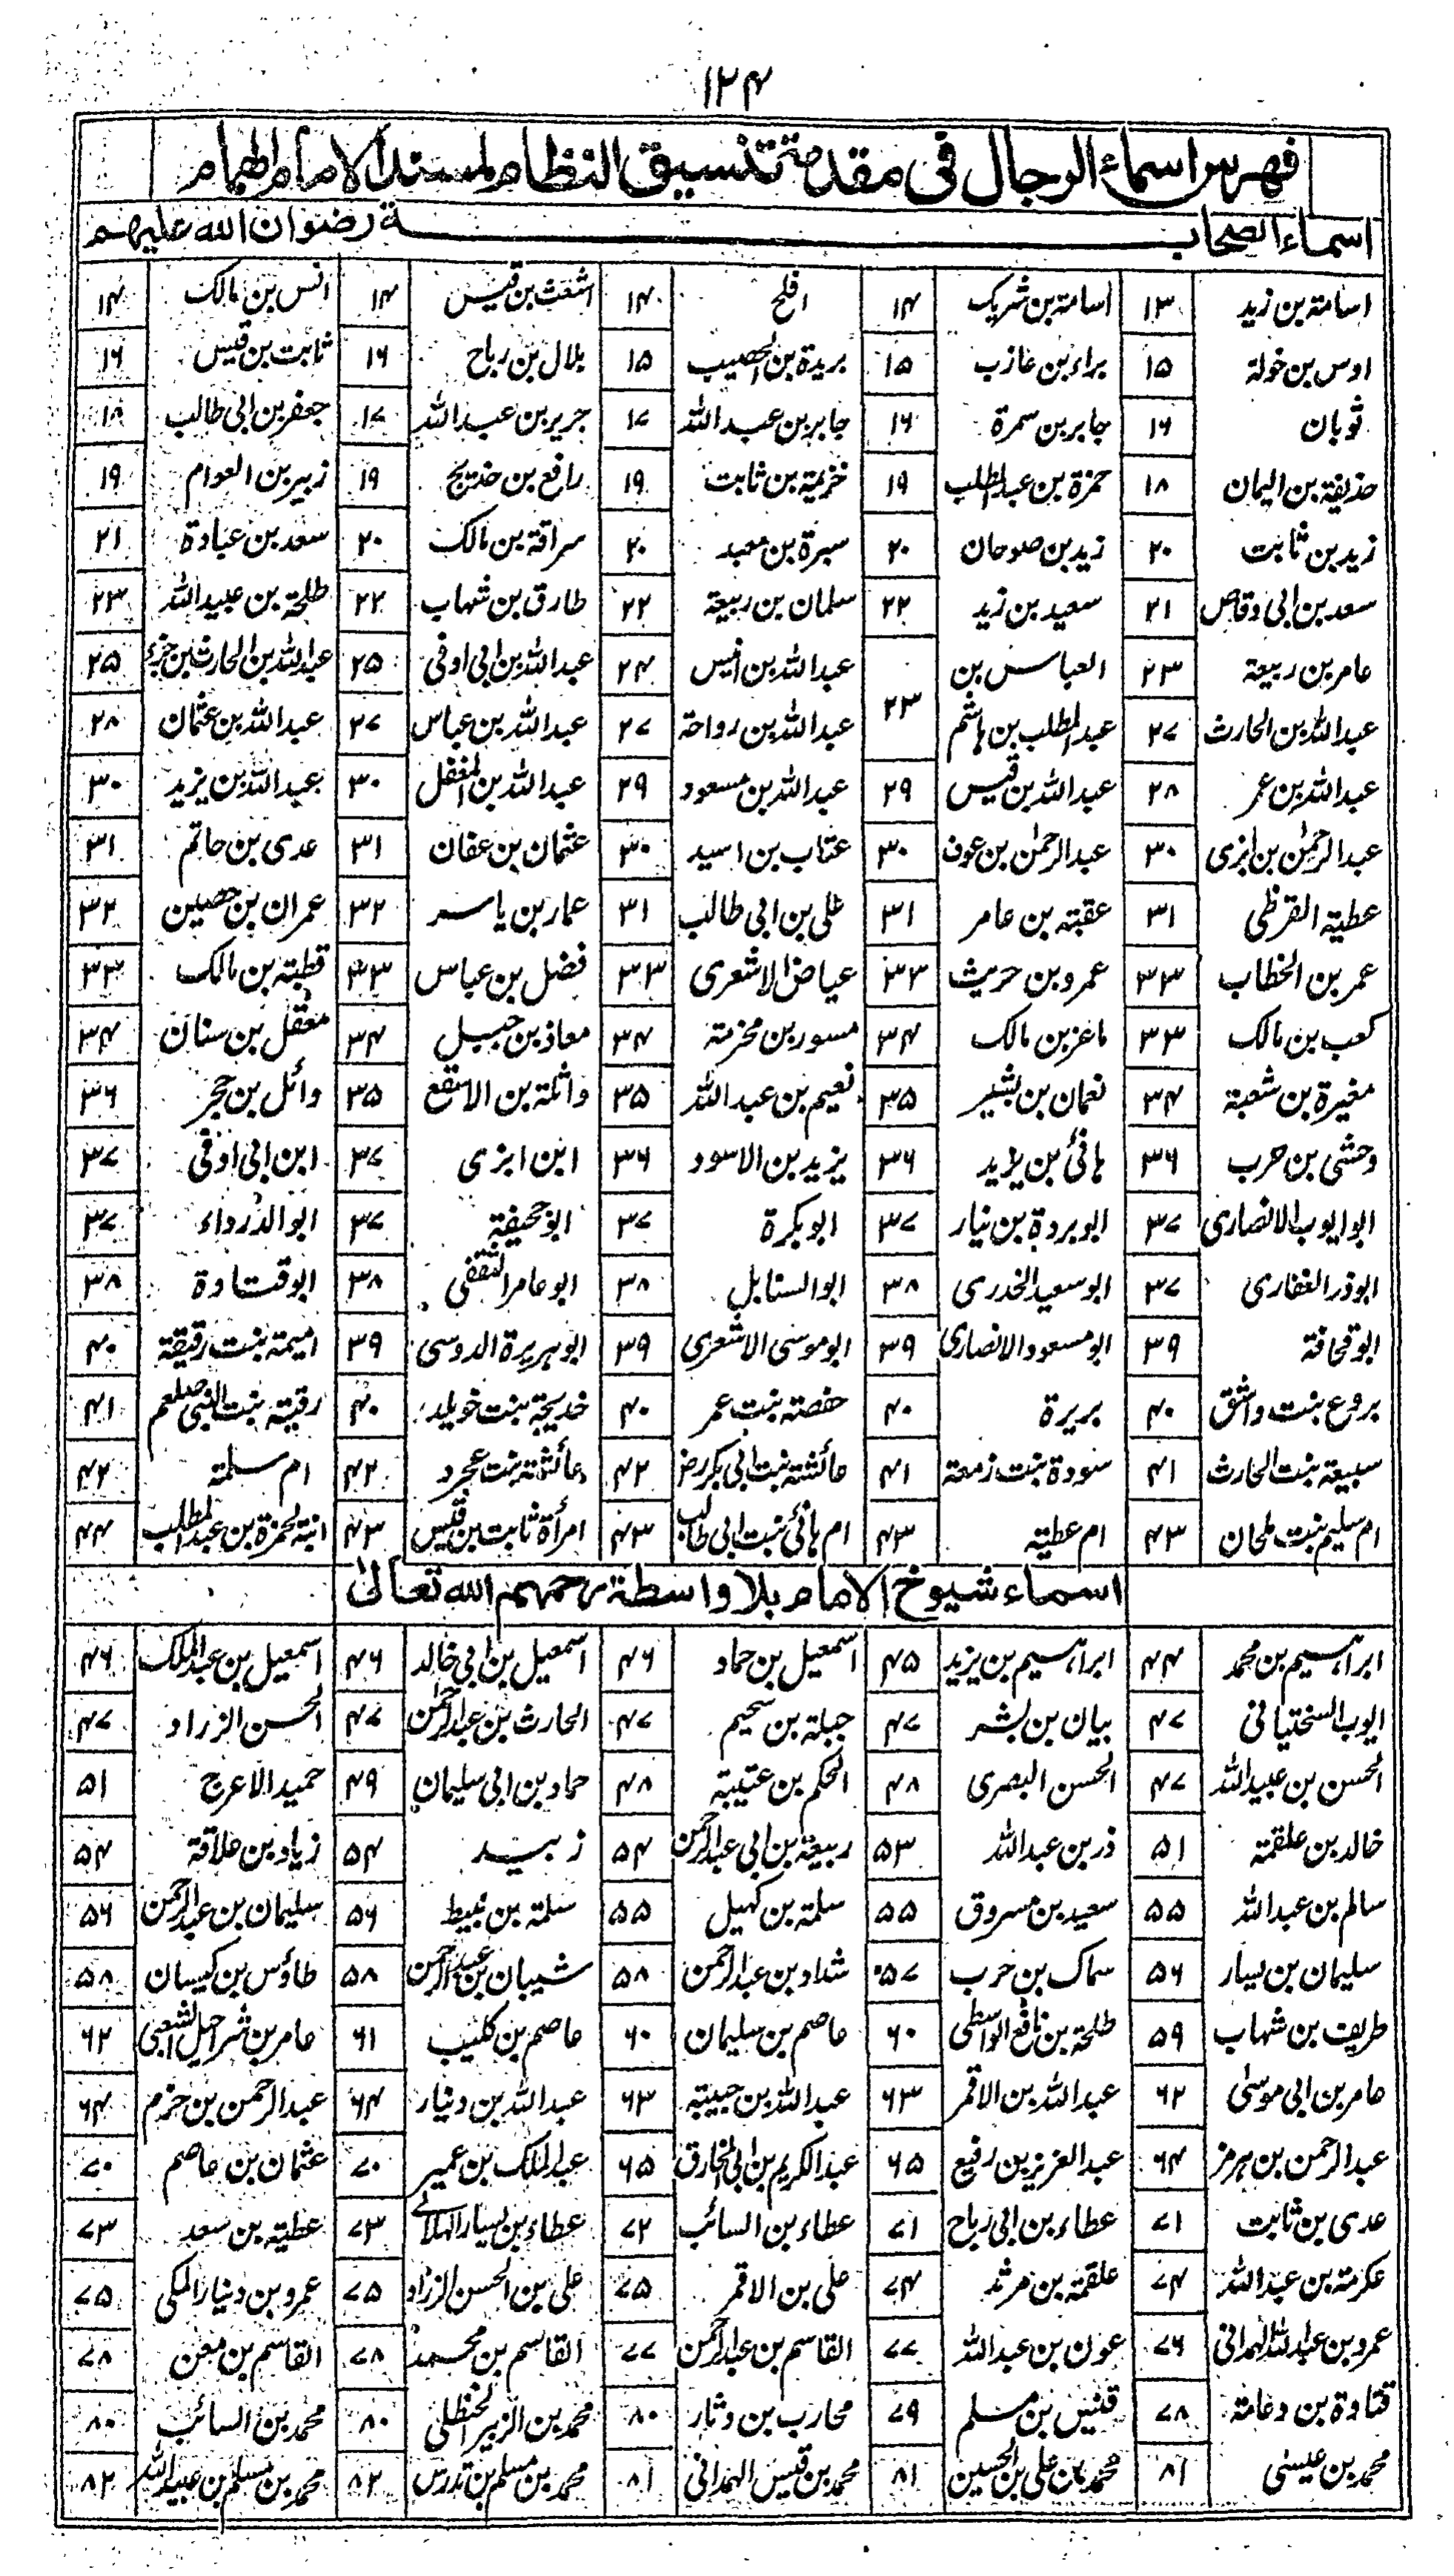 ۱۲۴
فهرس اسماء الرجال فی مقدمة تنسیق النظام لمسند الامام الهمام
اسماء الصحابة رضوان الله علیهم
اسامة بن زید ۱۳ اسامة بن شریک ۱۴ افلح ۱۴ اشعث بن قیس ۱۴ انس بن مالک ۱۴
اوس بن خولة ۱۵ براء بن عازب ۱۵ بریدة بن الحصیب ۱۵ بلال بن رباح ۱۶ ثابت بن قیس ۱۶
ثوبان ۱۶ جابر بن سمرة ۱۶ جابر بن عبد الله ۱۷ جریر بن عبد الله ۱۷ جعفر بن ابی طالب ۱۸
حذیفة بن الیمان ۱۸ حمزة بن عبد المطلب ۱۹ خزیمة بن ثابت ۱۹ رافع بن خدیج ۱۹ زبیر بن العوام ۱۹
زید بن ثابت ۲۰ زید بن صوحان ۲۰ سبرة بن معبد ۲۰ سراقة بن مالک ۲۰ سعد بن عبادة ۲۱
سعد بن ابی وقاص ۲۱ سعید بن زید ۲۲ سلمان بن ربیعة ۲۲ طارق بن شهاب ۲۲ طلحة بن عبید الله ۲۳
عامر بن ربیعة ۲۳ العباس بن عبد المطلب بن هاشم ۲۳ عبد الله بن انیس ۲۴ عبد الله بن ابی اوفی ۲۵ عبد الله بن الحارث بن جزء ۲۵
عبد الله بن الحارث ۲۷ عبد الله بن رواحة ۲۷ عبد الله بن عباس ۲۷ عبد الله بن عثمان ۲۸
عبد الله بن عمر ۲۸ عبد الله بن قیس ۲۹ عبد الله بن مسعود ۲۹ عبد الله بن المغفل ۳۰ عبد الله بن یزید ۳۰
عبد الرحمٰن بن ابزی ۳۰ عبد الرحمٰن بن عوف ۳۰ عتاب بن اسید ۳۰ عثمان بن عفان ۳۱ عدی بن حاتم ۳۱
عطیة القرظی ۳۱ عقبة بن عامر ۳۱ علی بن ابی طالب ۳۱ عمار بن یاسر ۳۲ عمران بن حصین ۳۲
عمر بن الخطاب ۳۳ عمرو بن حریث ۳۳ عیاض الاشعری ۳۳ فضل بن عباس ۳۳ قطبة بن مالک ۳۳
کعب بن مالک ۳۳ ماعز بن مالک ۳۴ مسور بن مخرمة ۳۴ معاذ بن جبل ۳۴ معقل بن سنان ۳۴
مغیرة بن شعبة ۳۴ نعمان بن بشیر ۳۵ نعیم بن عبد الله ۳۵ واثلة بن الاسقع ۳۵ وائل بن حجر ۳۶
وحشی بن حرب ۳۶ هانئ بن یزید ۳۶ یزید بن الاسود ۳۶ ابن ابزی ۳۷ ابن ابی اوفی ۳۷
ابو ایوب الانصاری ۳۷ ابو بردة بن نیار ۳۷ ابو بکرة ۳۷ ابو جحیفة ۳۷ ابو الدرداء ۳۷
ابو ذر الغفاری ۳۷ ابو سعید الخدری ۳۸ ابو السنابل ۳۸ ابو عامر الثقفی ۳۸ ابو قتادة ۳۸
ابو قحافة ۳۹ ابو مسعود الانصاری ۳۹ ابو موسی الاشعری ۳۹ ابو هریرة الدوسی ۳۹ امیمة بنت رقیقة ۴۰
بروع بنت واشق ۴۰ بریرة ۴۰ حفصة بنت عمر ۴۰ خدیجة بنت خویلد ۴۰ رقیة بنت النبی صلعم ۴۱
سبیعة بنت الحارث ۴۱ سودة بنت زمعة ۴۱ عائشة بنت ابی بکر رض ۴۲ عائشة بنت عجرد ۴۲ ام سلمة ۴۲
ام سلیم بنت ملحان ۴۳ ام عطیة ۴۳ ام هانئ بنت ابی طالب ۴۳ امرأة ثابت بن قیس ۴۳ ابنة لحمزة بن عبد المطلب ۴۴
اسماء شیوخ الامام بلا واسطة رحمهم الله تعالیٰ
ابراهیم بن محمد ۴۴ ابراهیم بن یزید ۴۵ اسمعیل بن حماد ۴۶ اسمعیل بن ابی خالد ۴۶ اسمعیل بن عبد الملک ۴۶
ایوب السختیانی ۴۷ بیان بن بشر ۴۷ جبلة بن سحیم ۴۷ الحارث بن عبد الرحمن ۴۷ الحسن الزراد ۴۷
الحسن بن عبید الله ۴۷ الحسن البصری ۴۸ الحکم بن عتیبة ۴۸ حماد بن ابی سلیمان ۴۹ حمید الاعرج ۵۱
خالد بن علقمة ۵۱ ذر بن عبد الله ۵۳ ربیعة بن ابی عبد الرحمن ۵۴ زبید ۵۴ زیاد بن علاقة ۵۴
سالم بن عبد الله ۵۵ سعید بن مسروق ۵۵ سلمة بن کهیل ۵۵ سلمة بن نبیط ۵۶ سلیمان بن عبد الرحمن ۵۶
سلیمان بن یسار ۵۶ سماک بن حرب ۵۷ شداد بن عبد الرحمن ۵۸ شیبان بن عبد الرحمن ۵۸ طاؤس بن کیسان ۵۸
طریف بن شهاب ۵۹ طلحة بن نافع الواسطی ۶۰ عاصم بن سلیمان ۶۰ عاصم بن کلیب ۶۱ عامر بن شراحیل الشعبی ۶۲
عامر بن ابی موسیٰ ۶۲ عبد الله بن الاقمر ۶۳ عبد الله بن حبیبة ۶۳ عبد الله بن دینار ۶۴ عبد الرحمن بن حزم ۶۴
عبد الرحمن بن هرمز ۶۴ عبد العزیز بن رفیع ۶۵ عبد الکریم بن ابی المخارق ۶۵ عبد الملک بن عمیر ۷۰ عثمان بن عاصم ۷۰
عدی بن ثابت ۷۱ عطاء بن ابی رباح ۷۱ عطاء بن السائب ۷۲ عطاء بن یسار الهلالی ۷۳ عطیة بن سعد ۷۳
عکرمة بن عبد الله ۷۴ علقمة بن مرثد ۷۴ علی بن الاقمر ۷۵ علی بن الحسن الزراد ۷۵ عمرو بن دینار المکی ۷۵
عمرو بن عبد الله الهمدانی ۷۶ عون بن عبد الله ۷۷ القاسم بن عبد الرحمن ۷۷ القاسم بن محمد ۷۸ القاسم بن معن ۷۸
قتادة بن دعامة ۷۸ قیس بن مسلم ۷۹ محارب بن دثار ۸۰ محمد بن الزبیر الحنظلی ۸۰ محمد بن السائب ۸۰
محمد بن عیسیٰ ۸۱ محمد بن علی بن الحسین ۸۱ محمد بن قیس الهمدانی ۸۱ محمد بن مسلم بن تدرس ۸۲ محمد بن مسلم بن عبید الله ۸۲